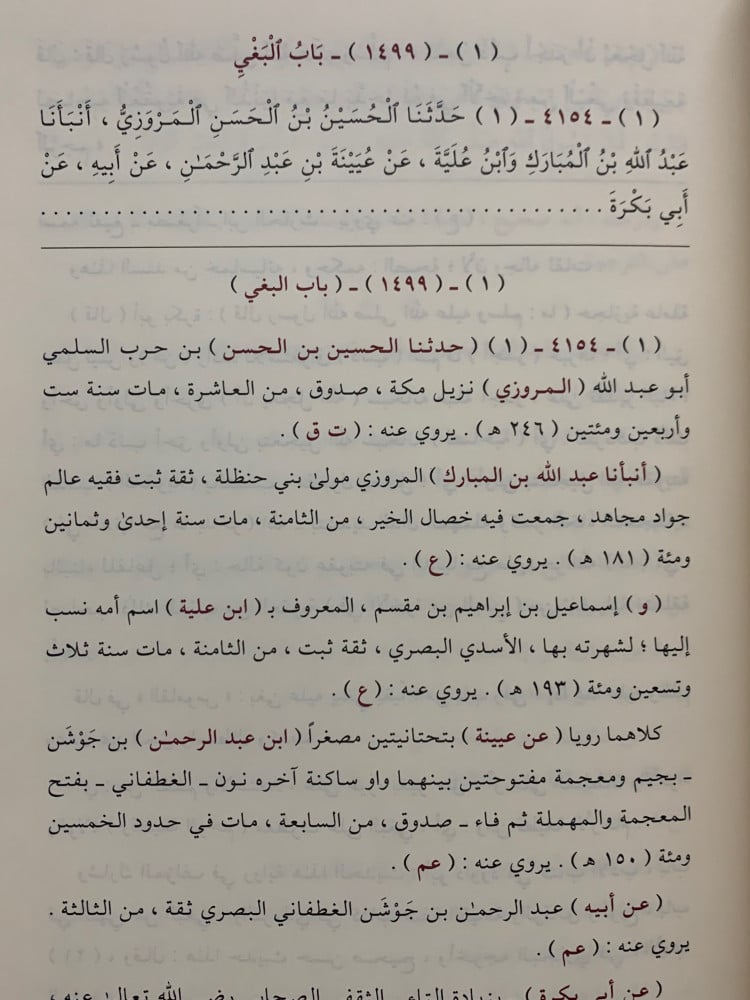 (١) ـ (١٤٩٩) ـ بَابُ ٱلْبَغْيِ
(١) ـ ٤١٥٤ ـ (١) حَدَّثَنَا ٱلْحُسَيْنُ بْنُ ٱلْحَسَنِ ٱلْـمَرْوَزِيُّ ، أَنْبَأَنَا
عَبْدُ ٱللهِ بْنُ ٱلْمُبَارَكِ وَٱبْنُ عُلَيَّةَ ، عَنْ عُيَيْنَةَ بْنِ عَبْدِ ٱلرَّحْمَـٰنِ ، عَنْ أَبِيهِ ، عَنْ
أَبِي بَكْرَةَ . . . . . . . . . . . . . . . . . . . . . . . . . . . . . . . . . . . . . . . . . . . .
(١) ـ (١٤٩٩) ـ (باب البغي)
(١) ـ ٤١٥٤ ـ (١) (حدثنا الحسين بن الحسن) بن حرب السلمي
أبو عبد الله (الـمروزي) نزيل مكة ، صدوق ، من العاشرة ، مات سنة ست
وأربعين ومئتين (٢٤٦ هـ) . يروي عنه : (ت ق) .
(أنبأنا عبد الله بن المبارك) المروزي مولىٰ بني حنظلة ، ثقة ثبت فقيه عالم
جواد مجاهد ، جمعت فيه خصال الخير ، من الثامنة ، مات سنة إحدىٰ وثمانين
ومئة (١٨١ هـ) . يروي عنه : (ع) .
(و) إسماعيل بن إبراهيم بن مقسم ، المعروف بـ (ابن علية) اسم أمه نسب
إليها ؛ لشهرته بها ، الأسدي البصري ، ثقة ثبت ، من الثامنة ، مات سنة ثلاث
وتسعين ومئة (١٩٣ هـ) . يروي عنه : (ع) .
كلاهما رويا (عن عيينة) بتحتانيتين مصغراً (ابن عبد الرحمـٰن) بن جَوْشَن
ـ بجيم ومعجمة مفتوحتين بينهما واو ساكنة آخره نون ـ الغطفاني ـ بفتح
المعجمة والمهملة ثم فاء ـ صدوق ، من السابعة ، مات في حدود الخمسين
ومئة (١٥٠ هـ) . يروي عنه : (عم) .
(عن أبيه) عبد الرحمـٰن بن جَوْشَن الغطفاني البصري ثقة ، من الثالثة .
يروي عنه : (عم) .
(عن أبي بكرة) ـ بزيادة التاء ـ الثقفي الصحابي رضي الله تعالىٰ عنه ،